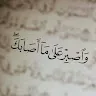 وَاصْبِرْ عَلَىٰ مَا أَصَابَكَ